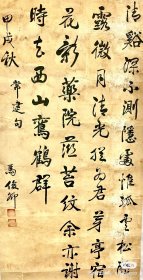 清谿深不測隱處惟孤雲松際
露微月清光猶為君茅亭宿
花影藥院滋苔紋余亦謝
時去西山鸞鶴群
常建句
甲戌秋